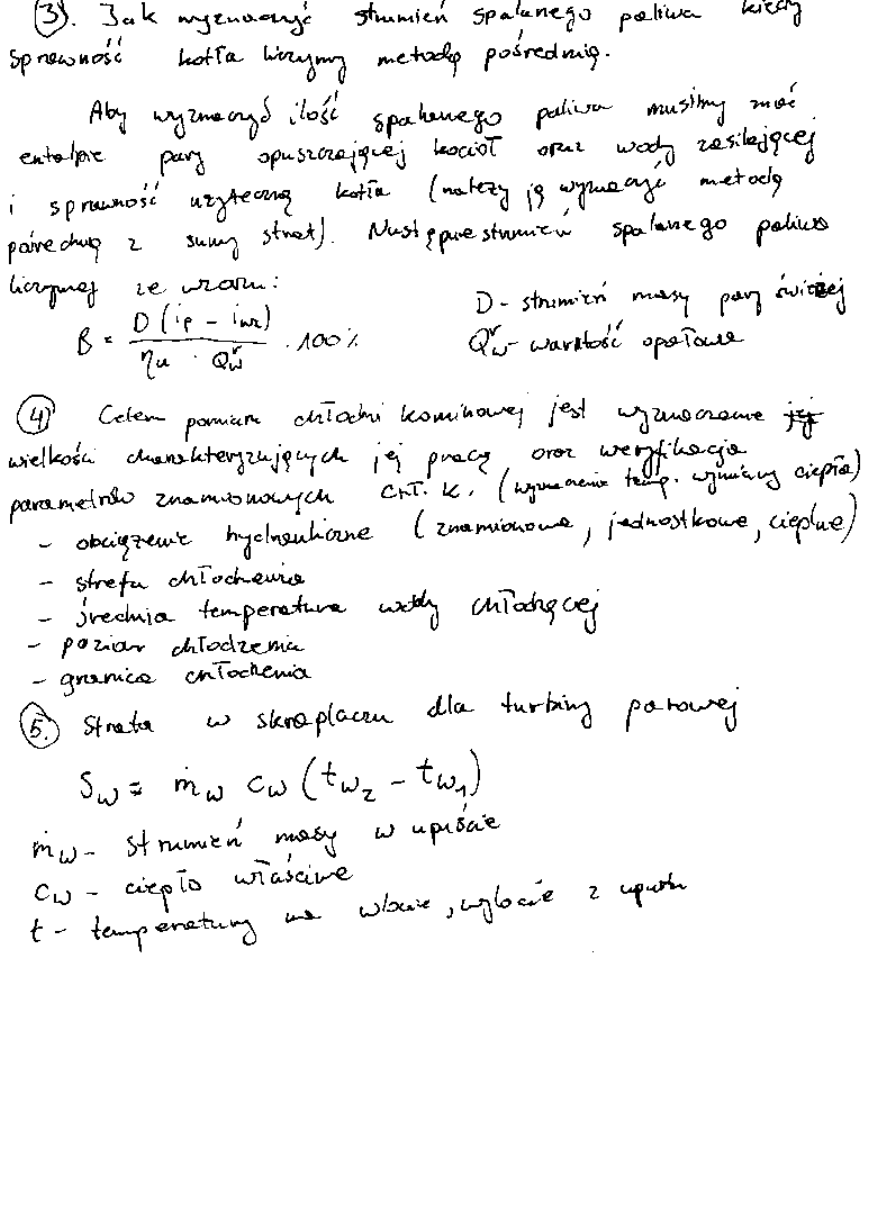 ③. Jak wyznaczyć strumień spalanego paliwa kiedy
sprawność kotła liczymy metodą pośrednią.
Aby wyznaczyć ilość spalanego paliwa musimy znać
entalpie pary opuszczającej kocioł oraz wody zasilającej
i sprawność użyteczną kotła (należy ją wyznaczyć metodą
pośrednią z sumy strat). Następnie strumień spalanego paliwa
liczymy ze wzoru:
B = D (ip - iwz) / ηu · Qwr · 100%
D - strumień masy pary świeżej
Qwr - wartość opałowa
④ Celem pomiaru chłodni kominowej jest wyznaczenie
wielkości charakteryzujących jej pracę oraz weryfikacja
parametrów znamionowych chł. k. (wyznaczenie temp. wymiany ciepła)
- obciążenie hydrauliczne (znamionowe, jednostkowe, cieplne)
- strefa chłodzenia
- średnia temperatura wody chłodzącej
- poziom chłodzenia
- granica chłodzenia
⑤. Strata w skraplaczu dla turbiny parowej
Sw = ṁw cw (tw2 - tw1)
ṁw - strumień masy w upuście
cw - ciepło właściwe
t - temperatury na wlocie, wylocie z upustu